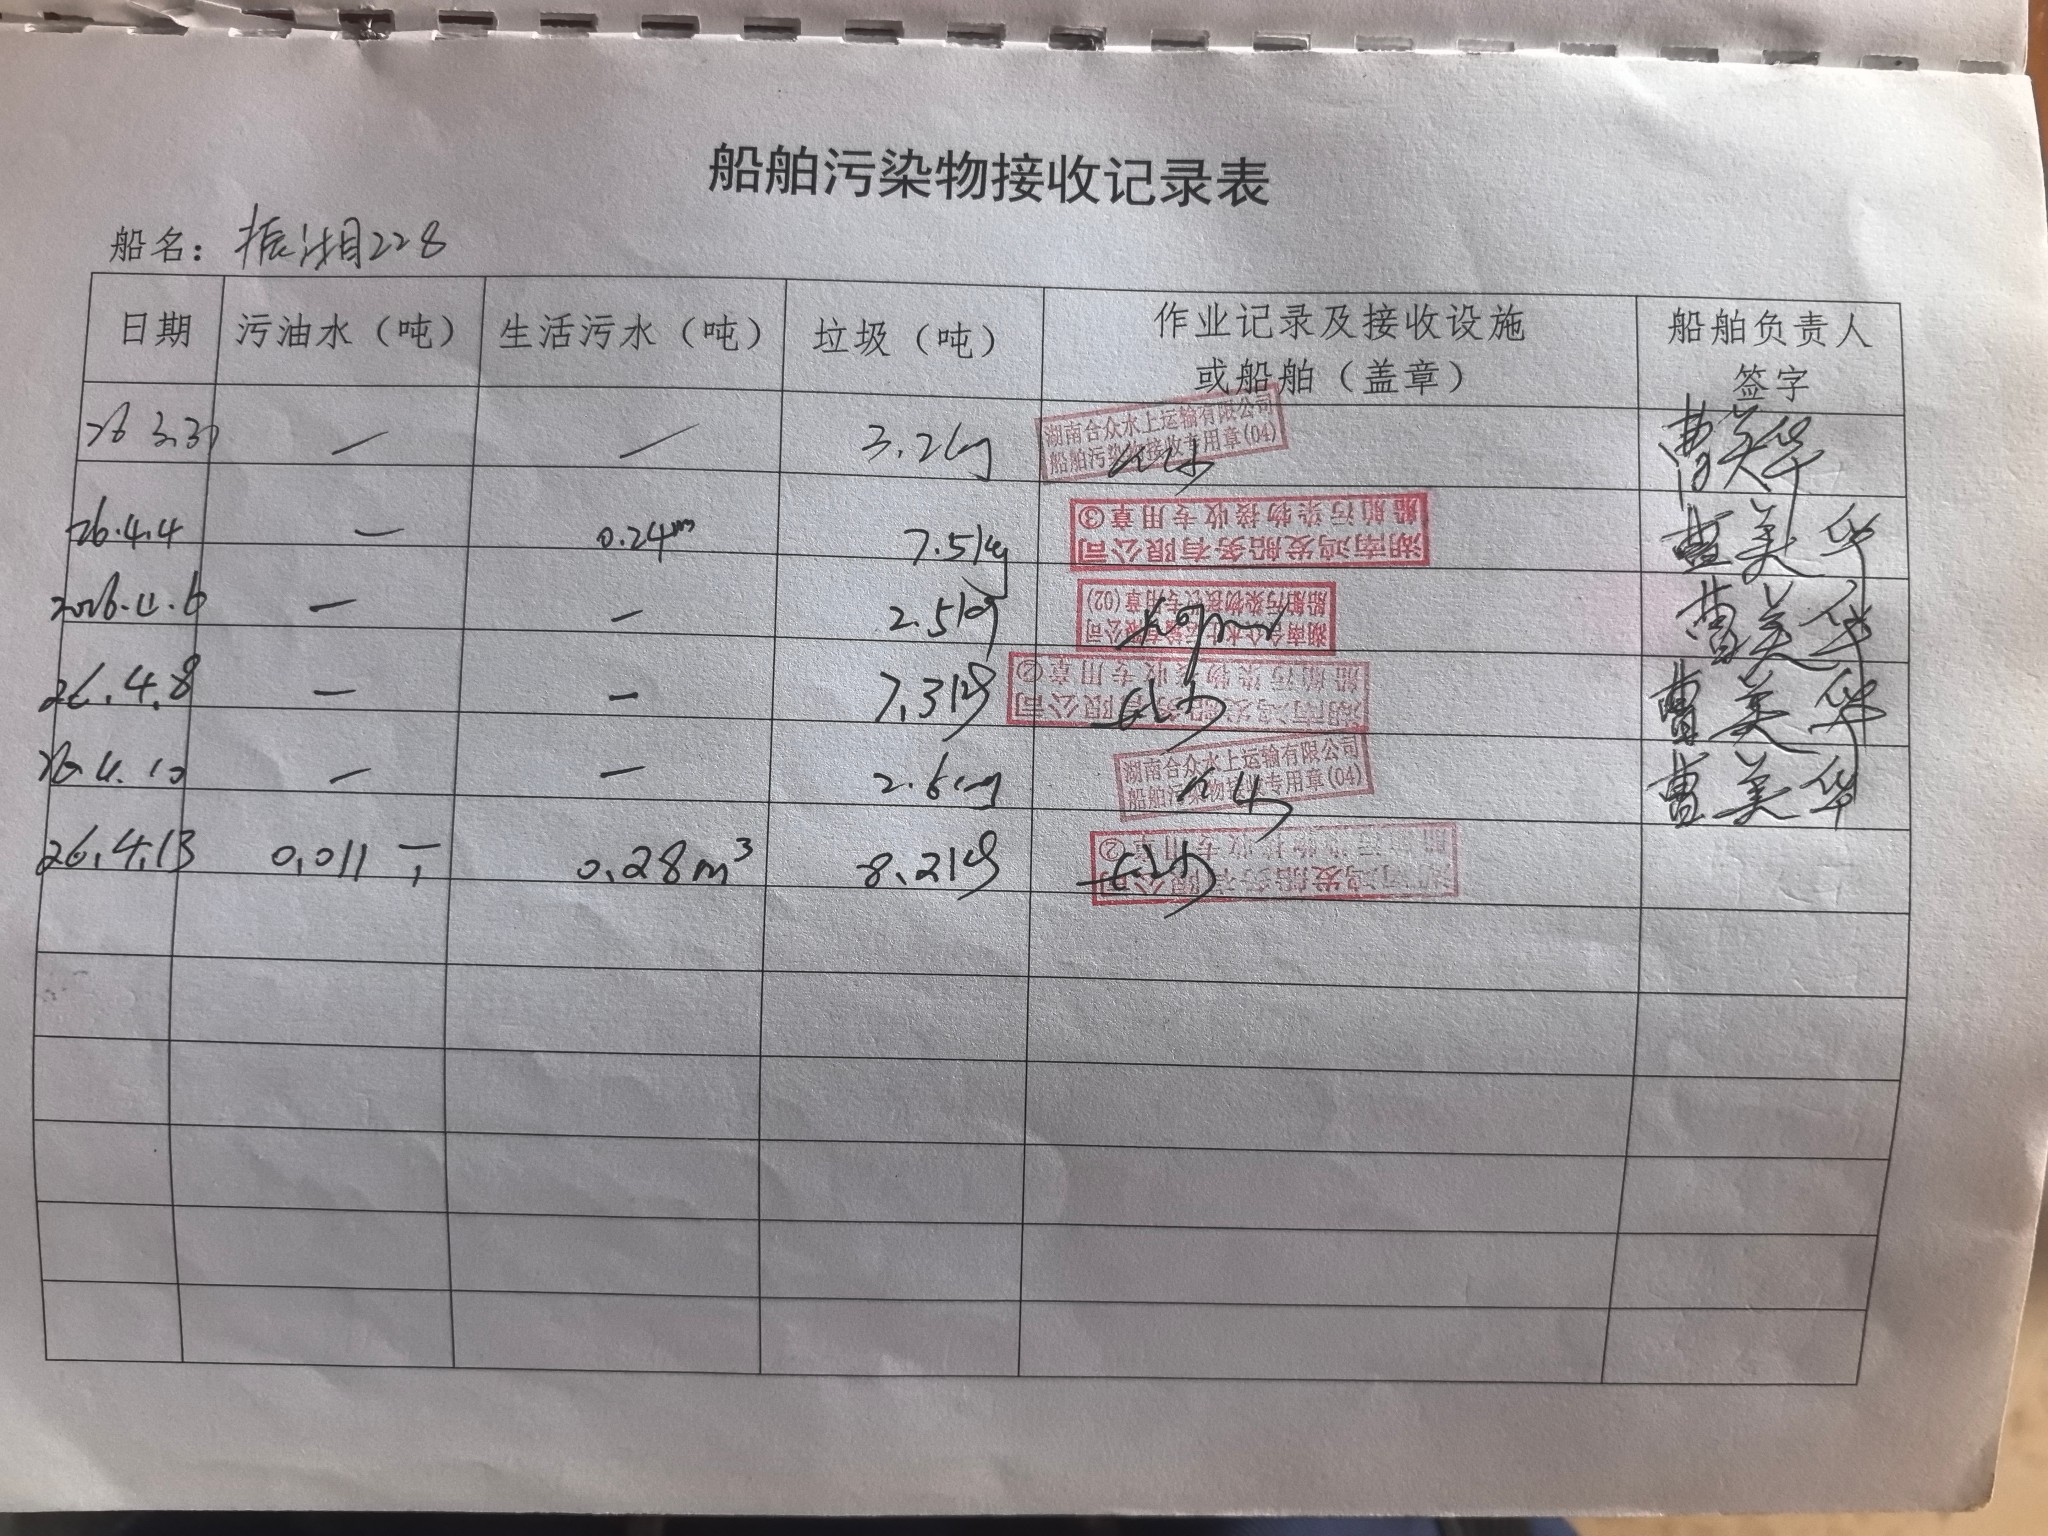 船舶污染物接收记录表
船名：振湘228
日期 污油水（吨） 生活污水（吨） 垃圾（吨） 作业记录及接收设施或船舶（盖章） 船舶负责人签字
26 3.31 — — 3.2kg 湖南合众水上运输有限公司 船舶污染物接收专用章(04) 曹美华
26.4.4 — 0.24m 7.5kg 湖南鸿发船务有限公司 船舶污染物接收专用章③ 曹美华
2026.4.6 — — 2.5kg 湖南合众水上运输有限公司 船舶污染物接收专用章(02) 曹美华
26.4.8 — — 7.3kg 湖南鸿发船务有限公司 船舶污染物接收专用章② 曹美华
26.4.10 — — 2.6kg 湖南合众水上运输有限公司 船舶污染物接收专用章(04) 曹美华
26.4.13 0.011 T 0.28m³ 8.2kg 湖南鸿发船务有限公司 船舶污染物接收专用章②